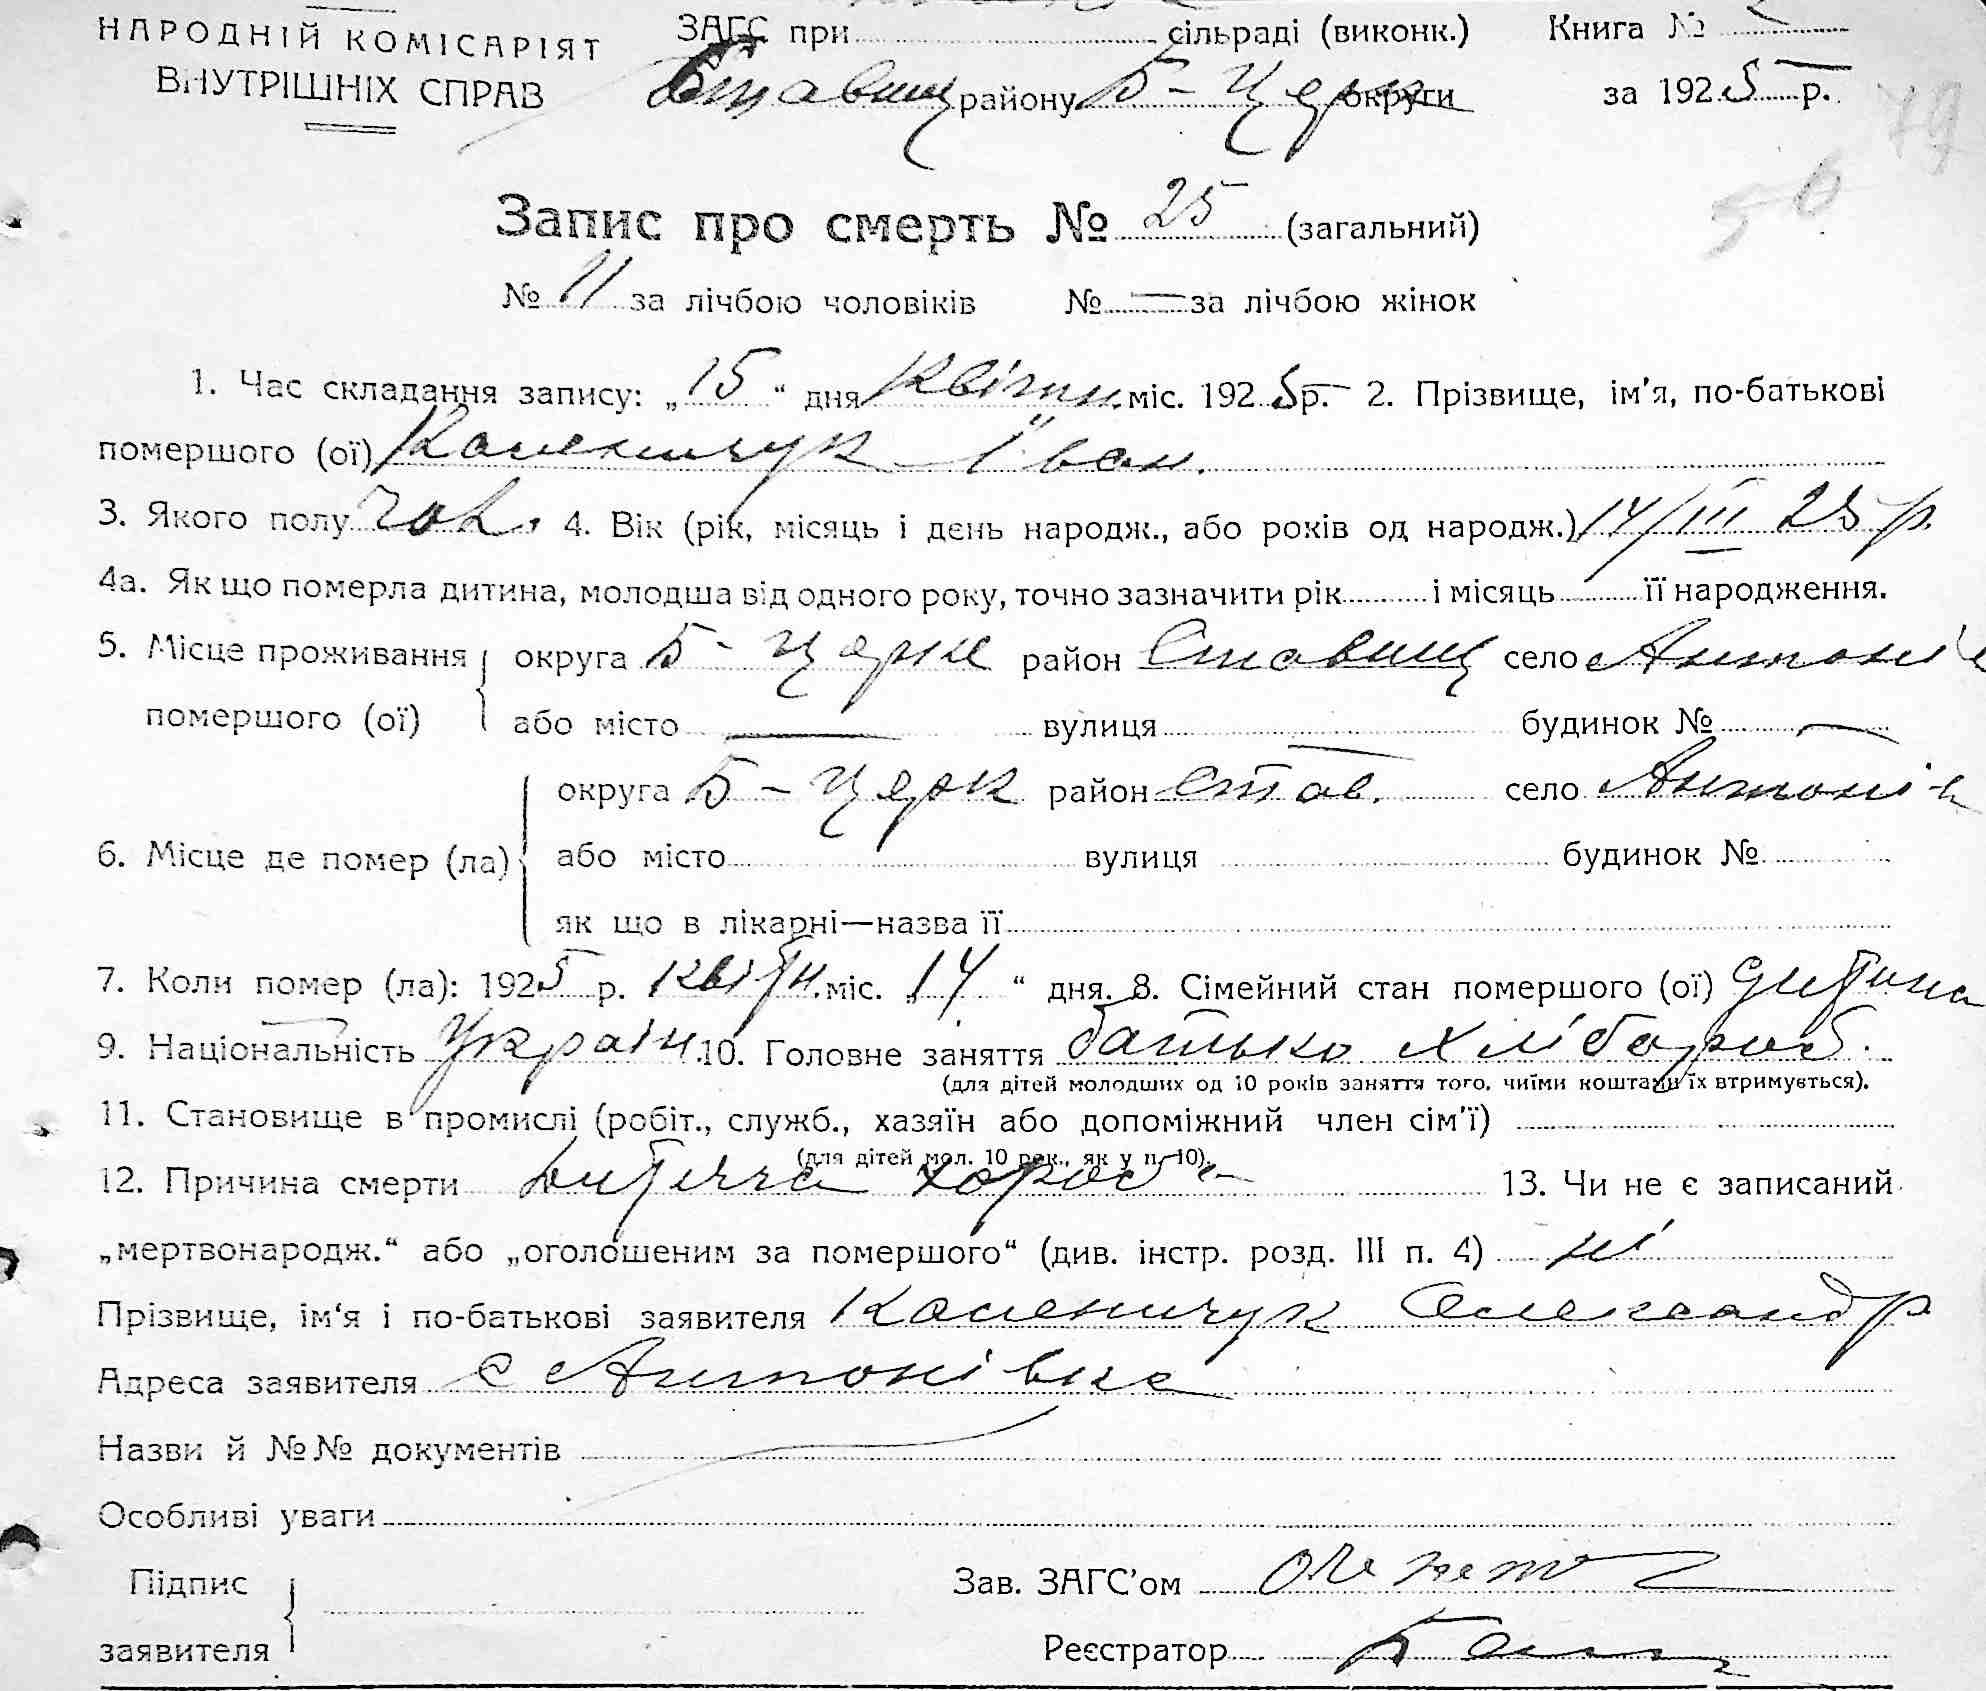 НАРОДНІЙ КОМІСАРІЯТ
ВНУТРІШНІХ СПРАВ
ЗАГС при сільраді (виконк.) Книга №
Ставищ району Б-Церк округи за 1925 р.
79
56
Запис про смерть № 25 (загальний)
№ 11 за лічбою чоловіків № — за лічбою жінок
1. Час складання запису: „15“ дня Квітн. міс. 1925 р. 2. Прізвище, ім'я, по-батькові
помершого (ої) Каленичук Іван.
3. Якого полу чол. 4. Вік (рік, місяць і день народж., або років од народж.) 14/III 25 р.
4а. Як що померла дитина, молодша від одного року, точно зазначити рік і місяць її народження.
5. Місце проживання помершого (ої) округа Б-Церк район Ставищ село Антонів
або місто — вулиця — будинок № —
6. Місце де помер (ла) округа Б-Церк район Став. село Антонів
або місто вулиця будинок №
як що в лікарні—назва її
7. Коли помер (ла): 1925 р. квітн. міс. „14“ дня. 8. Сімейний стан помершого (ої) дитина
9. Національність Україн. 10. Головне заняття батько хлібороб.
(для дітей молодших од 10 років заняття того, чиїми коштами їх втримується).
11. Становище в промислі (робіт., служб., хазяїн або допоміжний член сім'ї)
(для дітей мол. 10 рок., як у п. 10).
12. Причина смерти Дитяча хороба 13. Чи не є записаний
„мертвонародж.“ або „оголошеним за помершого“ (див. інстр. розд. III п. 4) ні
Прізвище, ім'я і по-батькові заявителя Каленичук Олександр
Адреса заявителя с Антонівка
Назви й №№ документів
Особливі уваги
Підпис заявителя
Зав. ЗАГС'ом
Реєстратор